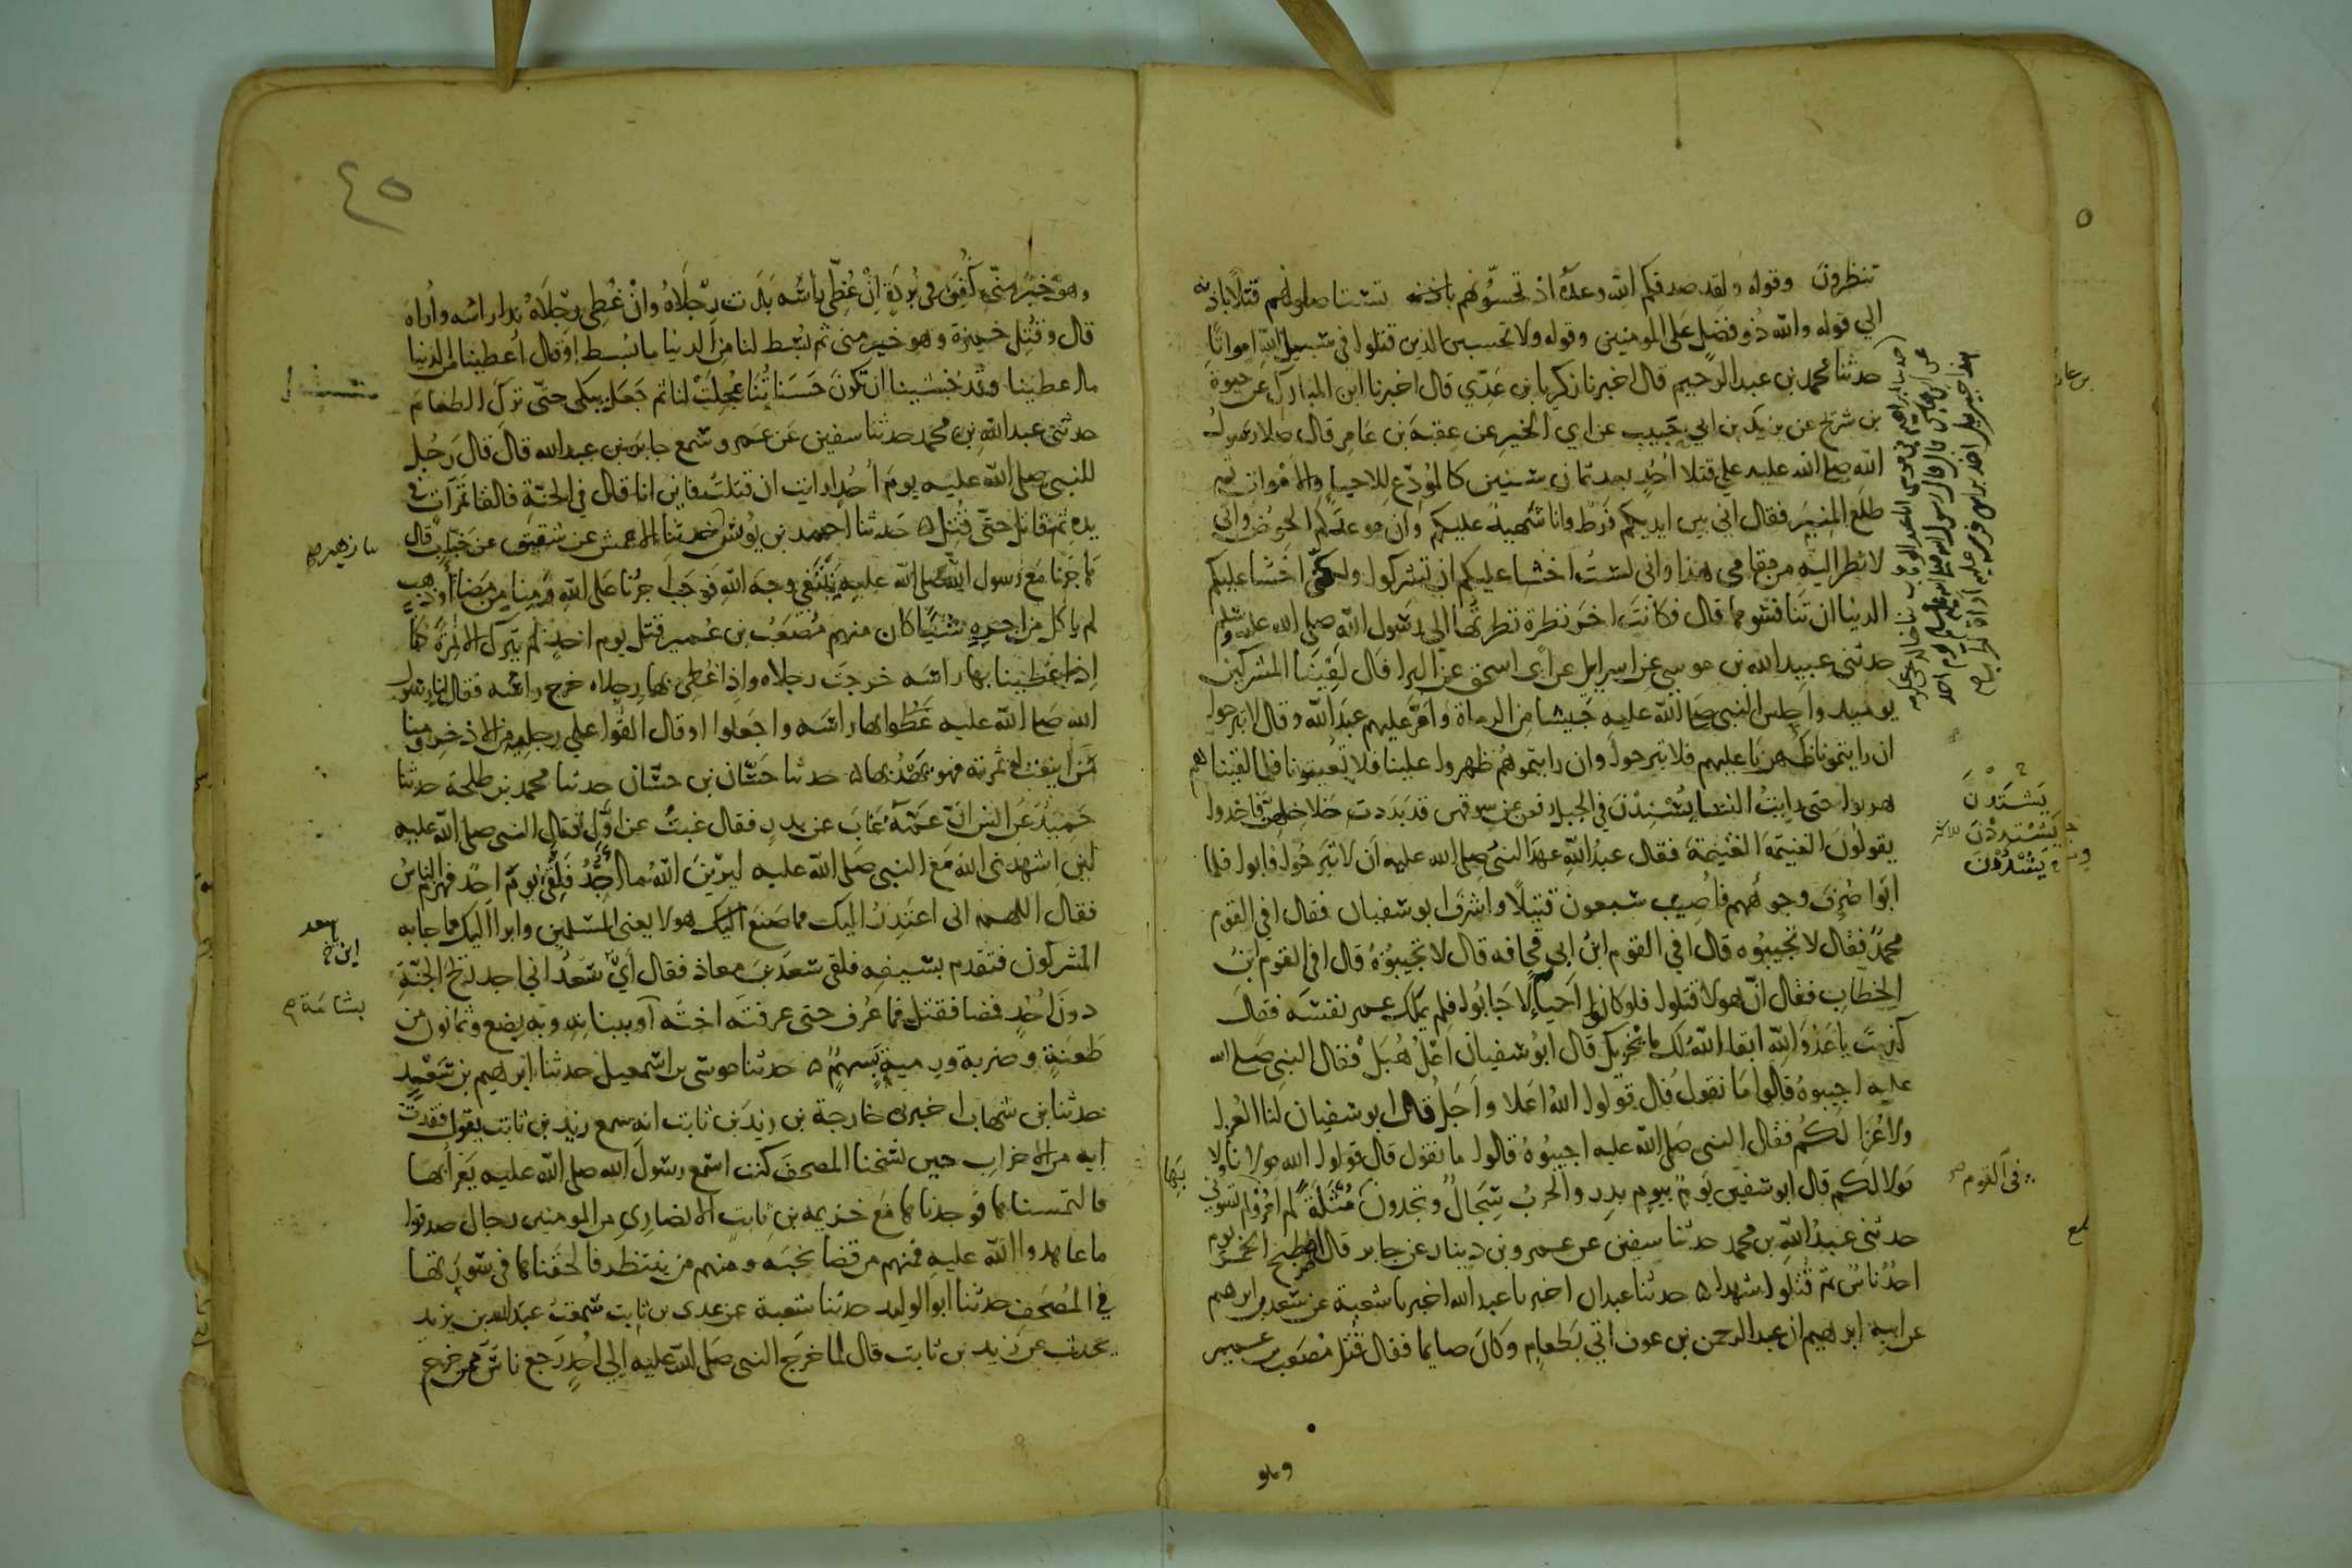 تنظرون وقوله ولقد صدقكم الله وعده اذ تحسونهم باذنه تستاصلونهم قتلا باذنه
الي قوله والله ذو فضل على المومنين وقوله ولا تحسبن الذين قتلوا في سبيل الله امواتا
حدثنا محمد بن عبد الرحيم قال اخبرنا زكريا بن عدي قال اخبرنا ابن المبارك عن حيوة
بن شريح عن يزيد بن ابي حبيب عن ابي الخير عن عقبة بن عامر قال صلا رسول
الله صلى الله عليه علي قتلا احد بعد ثمان سنين كالمودع للاحيا والاموات ثم
طلع المنبر فقال اني بين ايديكم فرط وانا شهيد عليكم وان موعدكم الحوض واني
لانظر اليه من مقامي هذا واني لست اخشا عليكم ان تشركوا ولكني اخشا عليكم
الدنيا ان تنافسوها قال فكانت اخر نظرة نظرتها الي رسول الله صلى الله عليه وسلم
حدثني عبيد الله بن موسي عن اسرايل عن ابي اسحق عن البرا قال لقينا المشركين
يوميذ واجلس النبي صلى الله عليه جيشا من الرماة وامر عليهم عبد الله وقال لا تبرحوا
ان رايتمونا ظهرنا عليهم فلا تبرحوا وان رايتموهم ظهروا علينا فلا تعينونا فلما لقينا هم
هربوا حتى رايت النسا يسندن في الجبل رفعن عن سوقهن قد بدت خلاخلهن فاخذوا
يقولون الغنيمة الغنيمة فقال عبد الله عهد النبي صلى الله عليه ان لا تبرحوا فابوا فلما
ابوا صرف وجوههم فاصيب سبعون قتيلا واشرف ابو سفيان فقال افي القوم
محمد فقال لا تجيبوه قال افي القوم ابن ابي قحافه قال لا تجيبوه قال افي القوم ابن
الخطاب فقال ان هولا قتلوا فلو كانوا احياء لاجابوا فلم يملك عمر نفسه فقال
كذبت يا عدو الله ابقا الله لك ما يخزيك قال ابو سفيان اعل هبل فقال النبي صلى الله
عليه اجيبوه قالوا ما نقول قال قولوا الله اعلا واجل قال ابو سفيان لنا العزا
ولا عزا لكم فقال النبي صلى الله عليه اجيبوه قالوا ما نقول قال قولوا الله مولانا ولا
مولا لكم قال ابو سفين يوم بيوم بدر والحرب سجال وتجدون مثلة لم امر بها ولم تسوني
حدثني عبد الله بن محمد حدثنا سفين عن عمرو بن دينار عن جابر قال اصطبح الخمر يوم
احد ناس ثم قتلوا شهدا ه حدثنا عبدان اخبرنا عبد الله اخبرنا شعبة عن سعد بن ابرهيم
عن ابيه ابرهيم ان عبد الرحمن بن عوف اتي بطعام وكان صايما فقال قتل مصعب بن عمير
يشتددن
يسندن
في القوم
بها
وهو
٤٥
وهو خير مني كفن في بردة ان غطي راسه بدت رجلاه وان غطي رجلاه بدا راسه واراه
قال وقتل حمزة وهو خير مني ثم بسط لنا من الدنيا ما بسط او قال اعطينا من الدنيا
ما اعطينا وقد خشينا ان تكون حسناتنا عجلت لنا ثم جعل يبكي حتى ترك الطعام
حدثني عبد الله بن محمد حدثنا سفين عن عمرو سمع جابر بن عبد الله قال قال رجل
للنبي صلى الله عليه يوم احد ارايت ان قتلت فاين انا قال في الجنة فالقا تمرات في
يده ثم قاتل حتى قتل ه حدثنا احمد بن يونس حدثنا الاعمش عن شقيق عن خباب قال
هاجرنا مع رسول الله صلى الله عليه نبتغي وجه الله فوجب اجرنا على الله ومنا من مضا او ذهب
لم ياكل من اجره شيئا كان منهم مصعب بن عمير قتل يوم احد لم يترك الا نمرة كنا
اذا غطينا بها راسه خرجت رجلاه واذا غطي بها رجلاه خرج راسه فقال لنا رسول
الله صلى الله عليه غطوا بها راسه واجعلوا او قال القوا علي رجله من الاذخر ومنا
من اينعت له ثمرته فهو يهدبها ه حدثنا حسان بن حسان حدثنا محمد بن طلحة حدثنا
حميد عن انس ان عمه غاب عن بدر فقال غبت عن اول قتال النبي صلى الله عليه
لين اشهدني الله مع النبي صلى الله عليه ليرين الله ما اجد فلقي يوم احد فهزم الناس
فقال اللهم اني اعتذر اليك مما صنع هولا يعني المسلمين وابرا اليك مما جا به
المشركون فتقدم بسيفه فلقي سعد بن معاذ فقال اي سعد اني اجد ريح الجنة
دون احد فمضا فقتل فما عرف حتى عرفته اخته او ببنانه وبه بضع وثمانون من
طعنة وضربة ورمية بسهم ه حدثنا موسى بن اسمعيل حدثنا ابرهيم بن سعد
حدثنا بن شهاب اخبرني خارجة بن زيد بن ثابت انه سمع زيد بن ثابت يقول فقدت
ايه من الاحزاب حين نسخنا المصحف كنت اسمع رسول الله صلى الله عليه يقرا بها
فالتمسناها فوجدناها مع خزيمه بن ثابت الانصاري من المومنين رجال صدقوا
ما عاهدوا الله عليه فمنهم من قضا نحبه ومنهم من ينتظر فالحقناها في سورتها
في المصحف حدثنا ابو الوليد حدثنا شعبة عن عدي بن ثابت سمعت عبد الله بن يزيد
يحدث عن زيد بن ثابت قال لما خرج النبي صلى الله عليه الي احد رجع ناس ممن خرج
نا زهير
سعد
بشامة